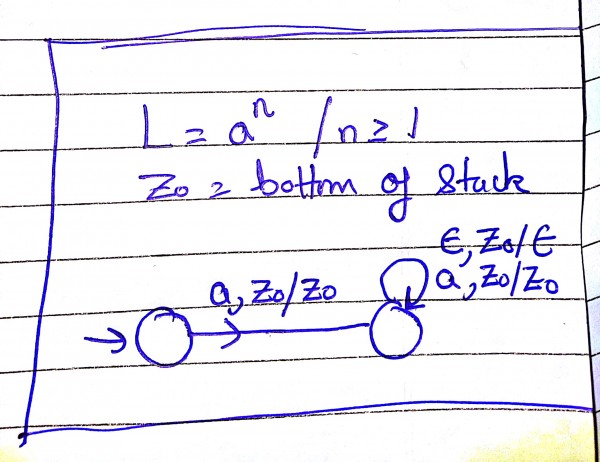 L = aⁿ / n ≥ 1
Z₀ = bottom of stack
ϵ, Z₀/ϵ
a, Z₀/Z₀ a, Z₀/Z₀